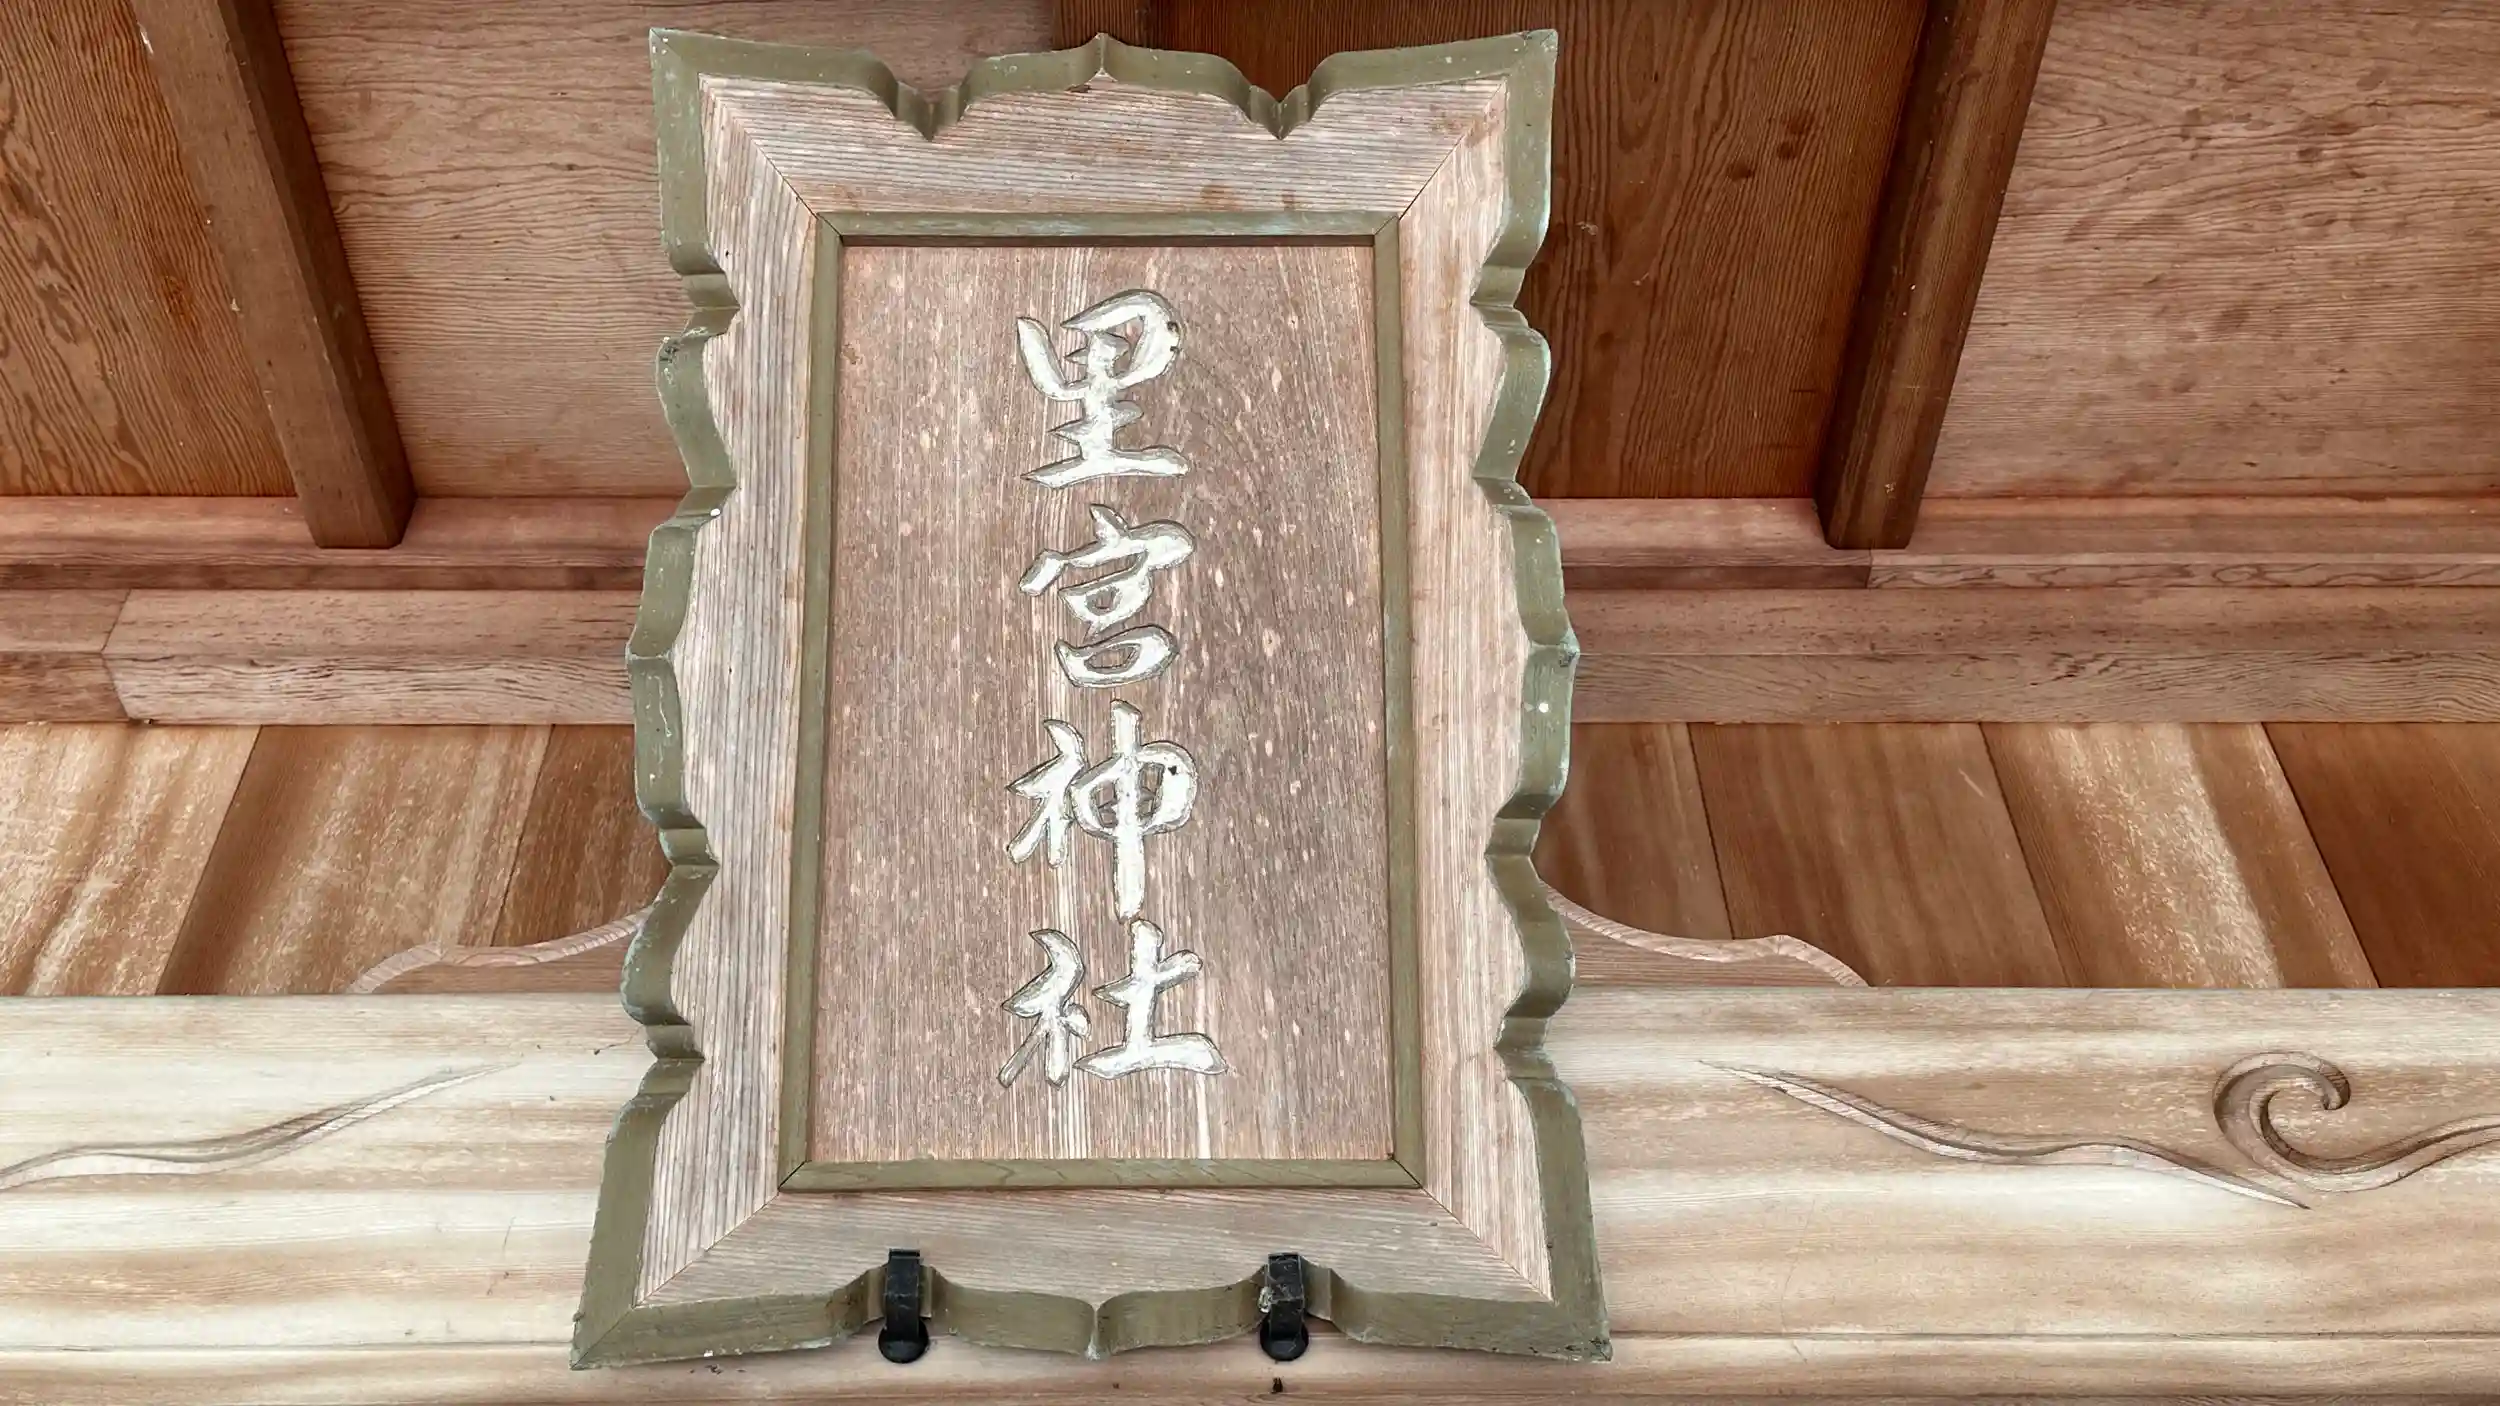 里宮神社